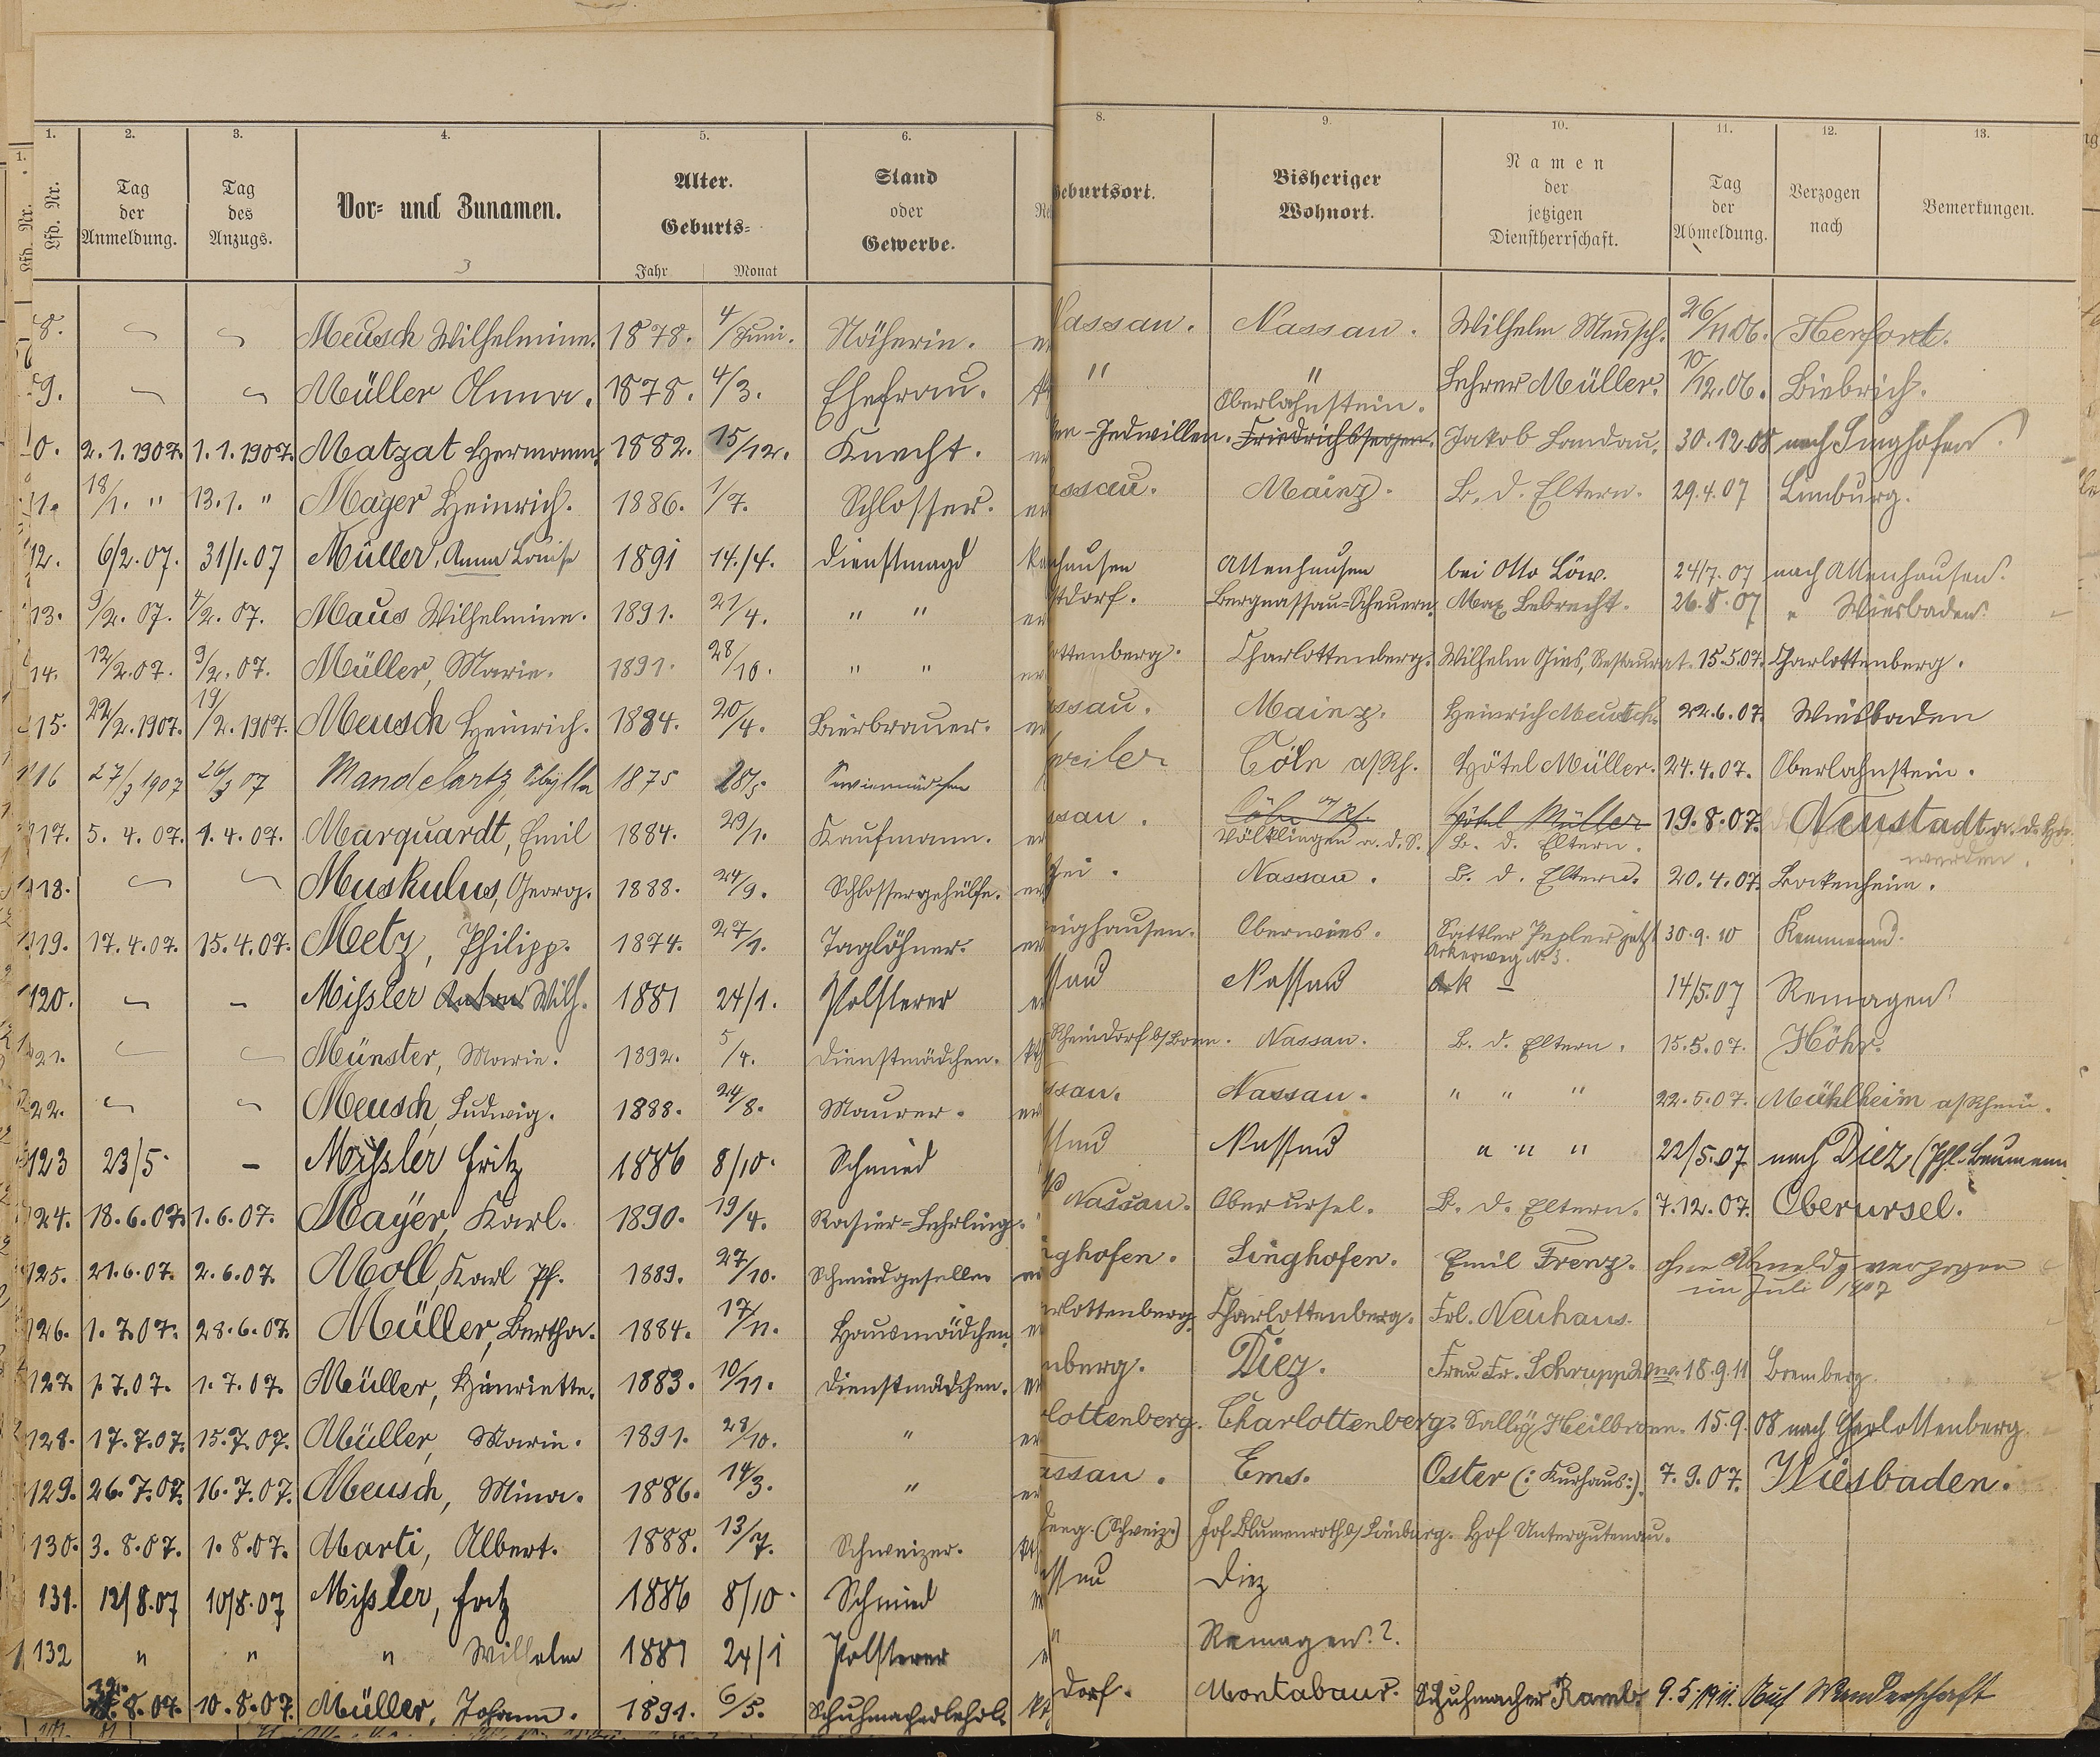 1. 2. 3. 4. 5. 6. 8. 9. 10. 11. 12. 13.
Lfd. Nr. Tag der Anmeldung. Tag des Anzugs. Vor- und Zunamen. Alter. Geburts- Jahr Monat Stand oder Gewerbe. Geburtsort. Bisheriger Wohnort. Namen der jetzigen Dienstherrschaft. Tag der Abmeldung. Verzogen nach Bemerkungen.
8. Meusch Wilhelmine. 1878. 4/Juni. Näherin. Nassau. Nassau. Wilhelm Meusch. 26/11.06. Herfort.
9. Müller Anna. 1878. 4/3. Ehefrau. " " Lehrer Müller. 10/12.06. Biebrich.
0. 2.1.1907. 1.1.1907. Matzat Hermann. 1882. 15/12. Knecht. -Jedwillen. Oberlahnstein. Friedrichssegen. Jakob Landau. 30.12.08 nach Singhofen.
11. 18/1. " 13.1. " Mager Heinrich. 1886. 1/7. Schlosser. ssau. Mainz. B. d. Eltern. 29.4.07 Limburg.
12. 6/2.07. 31/1.07 Müller, Anna Louise 1891 14./4. Dienstmagd hausen Attenhausen bei Otto Löw. 24/7.07 nach Attenhausen.
13. 9/2.07. 4/2.07. Maus Wilhelmine. 1891. 21/4. " " dorf. Bergnassau-Scheuern. Max Lebrecht. 26.8.07 " Wiesbaden.
14. 12/2.07. 9/2.07. Müller, Marie. 1891. 28/10. " " ottenberg. Charlottenberg. Wilhelm Gies, Restaurat. 15.5.07. Charlottenberg.
15. 22/2.1907. 19/2.1907. Meusch Heinrich. 1884. 20/4. Bierbrauer. ssau. Mainz. Heinrich Meusch. 22.6.07. Wiesbaden
16 27/3 1907 26/3 07 Mandelartz, Sibylla 1875 28/5. Serviermädchen weiler Cöln a/Rh. Hôtel Müller. 24.4.07. Oberlahnstein.
17. 5.4.07. 1.4.07. Marquardt, Emil 1884. 29/1. Kaufmann. ssau. Cöln a/Rh. Völklingen a.d.S. Hôtel Müller B. d. Eltern. 19.8.07. Neustadt a. d. Hdt.
18. Muskulus, Georg. 1888. 24/9. Schlossergehülfe. Nassau. B. d. Eltern. 20.4.07. Bockenheim.
119. 17.4.07. 15.4.07. Metz, Philipp. 1874. 27/1. Taglöhner. eighausen. Oberwies. Sattler Pepler jetzt Arkerweg No 3. 30.9.10 Kemmenau.
120. - - Mißler Anton Wilh. 1881 24/1. Polsterer ssau Nassau 14/5.07 Remagen
21. Münster, Marie. 1892. 5/4. Dienstmädchen. Rheindorf b/Bonn. Nassau. B. d. Eltern. 15.5.07. Höhr.
22. Meusch, Ludwig. 1888. 24/8. Maurer. ssau. Nassau. " " " 22.5.07. Mühlheim a/Rhein.
123 23/5. - Mißler Fritz 1886 8/10. Schmied ssau Nassau " " " 22/5.07 nach Diez
24. 18.6.07. 1.6.07. Mayer, Karl. 1890. 19/4. Rasier-Lehrling. Nassau. Oberursel. B. d. Eltern. 7.12.07. Oberursel.
125. 21.6.07. 2.6.07. Moll, Karl Ph. 1889. 27/10. Schmiedgeselle ghofen. Singhofen. Emil Frenz. ohne Abmeldg verzogen
im Juli 1907
126. 1.7.07. 28.6.07. Müller, Bertha. 1884. 17/11. Hausmädchen. rlottenberg. Charlottenberg. Frl. Neuhaus.
127. 1.7.07. 1.7.07. Müller, Henriette. 1883. 10/11. Dienstmädchen. nberg. Diez. Frau Fr. Schrupp 18.9.11 Bremberg.
128. 17.7.07. 15.7.07. Müller, Marie. 1891. 28/10. " lottenberg. Charlottenberg. Sally Heilbronn. 15.9.08 nach Charlottenberg.
129. 26.7.07. 16.7.07. Meusch, Mina. 1886. 14/3. " assau. Ems. Oster (: Kurhaus :). 7.9.07. Wiesbaden.
130. 3.8.07. 1.8.07. Marti, Albert. 1888. 13/7. Schweizer. (Schweiz.) Hof Blumenroth b/Limburg. Hof Untergutenau.
131. 12/8.07 10/8.07 Mißler, Fritz 1886 8/10. Schmied ssau Diez
132 " " " Wilhelm 1881 24/1 Polsterer " Remagen.?.
12.8.07. 10.8.07. Müller, Johann. 1891. 6/5. Schuhmacherlehrl. dorf. Montabaur. Schuhmacher Ramb 9.5. Auf Wanderschaft